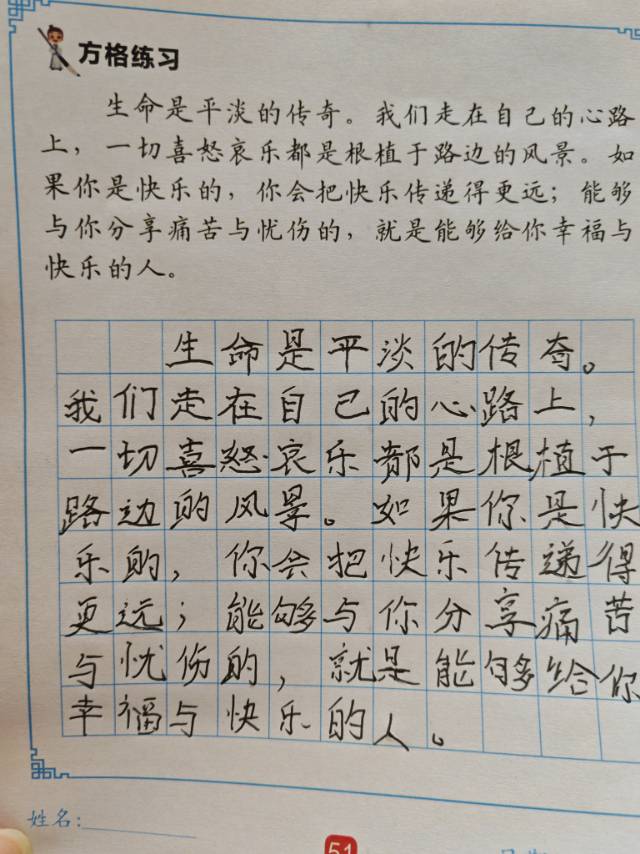 方格练习
生命是平淡的传奇。我们走在自己的心路
上，一切喜怒哀乐都是根植于路边的风景。如
果你是快乐的，你会把快乐传递得更远；能够
与你分享痛苦与忧伤的，就是能够给你幸福与
快乐的人。
生命是平淡的传奇。
我们走在自己的心路上，
一切喜怒哀乐都是根植于
路边的风景。如果你是快
乐的，你会把快乐传递得
更远；能够与你分享痛苦
与忧伤的，就是能够给你
幸福与快乐的人。
姓名:
51